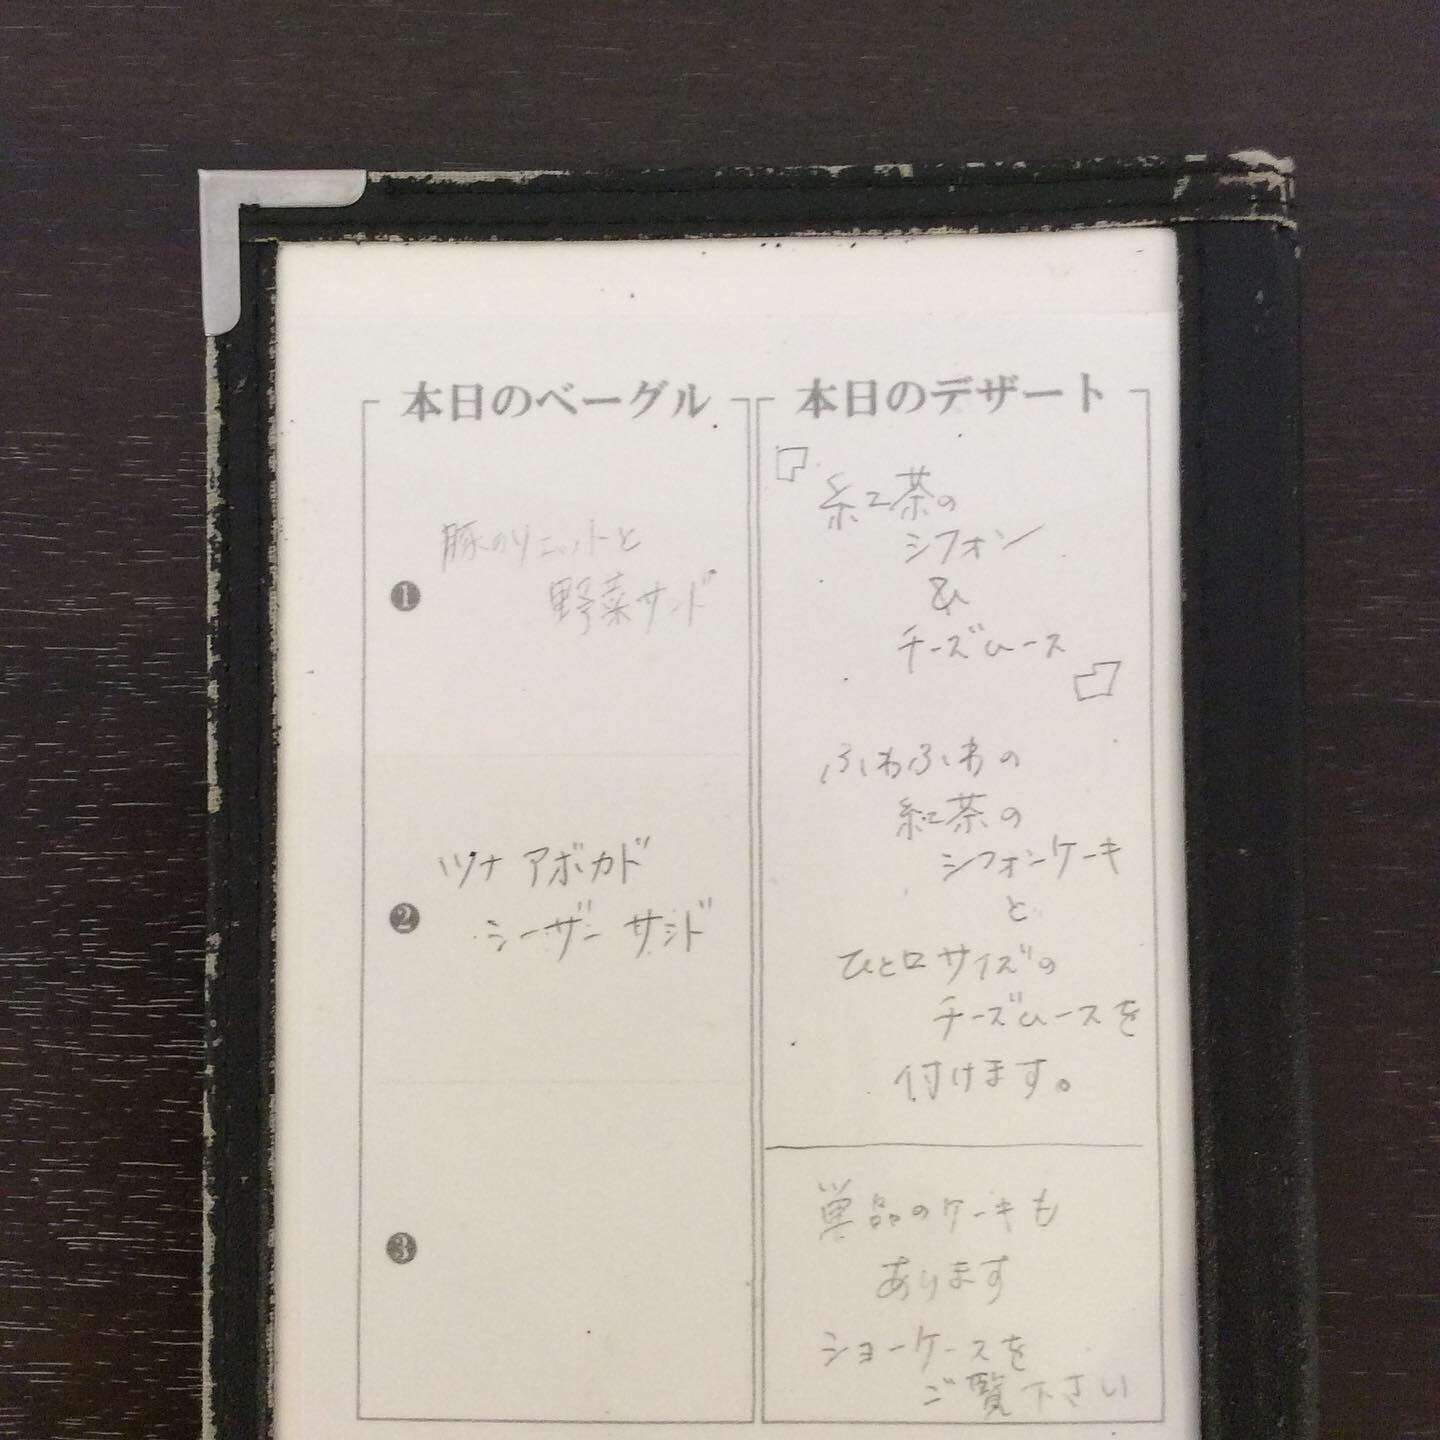 本日のベーグル
❶
豚のリエットと
野菜サンド
❷
ツナ アボカド
シーザー サンド
❸
本日のデザート
『紅茶の
シフォン
&
チーズムース』
ふわふわの
紅茶の
シフォンケーキ
と
ひと口サイズの
チーズムースを
付けます。
単品のケーキも
あります
ショーケースを
ご覧下さい